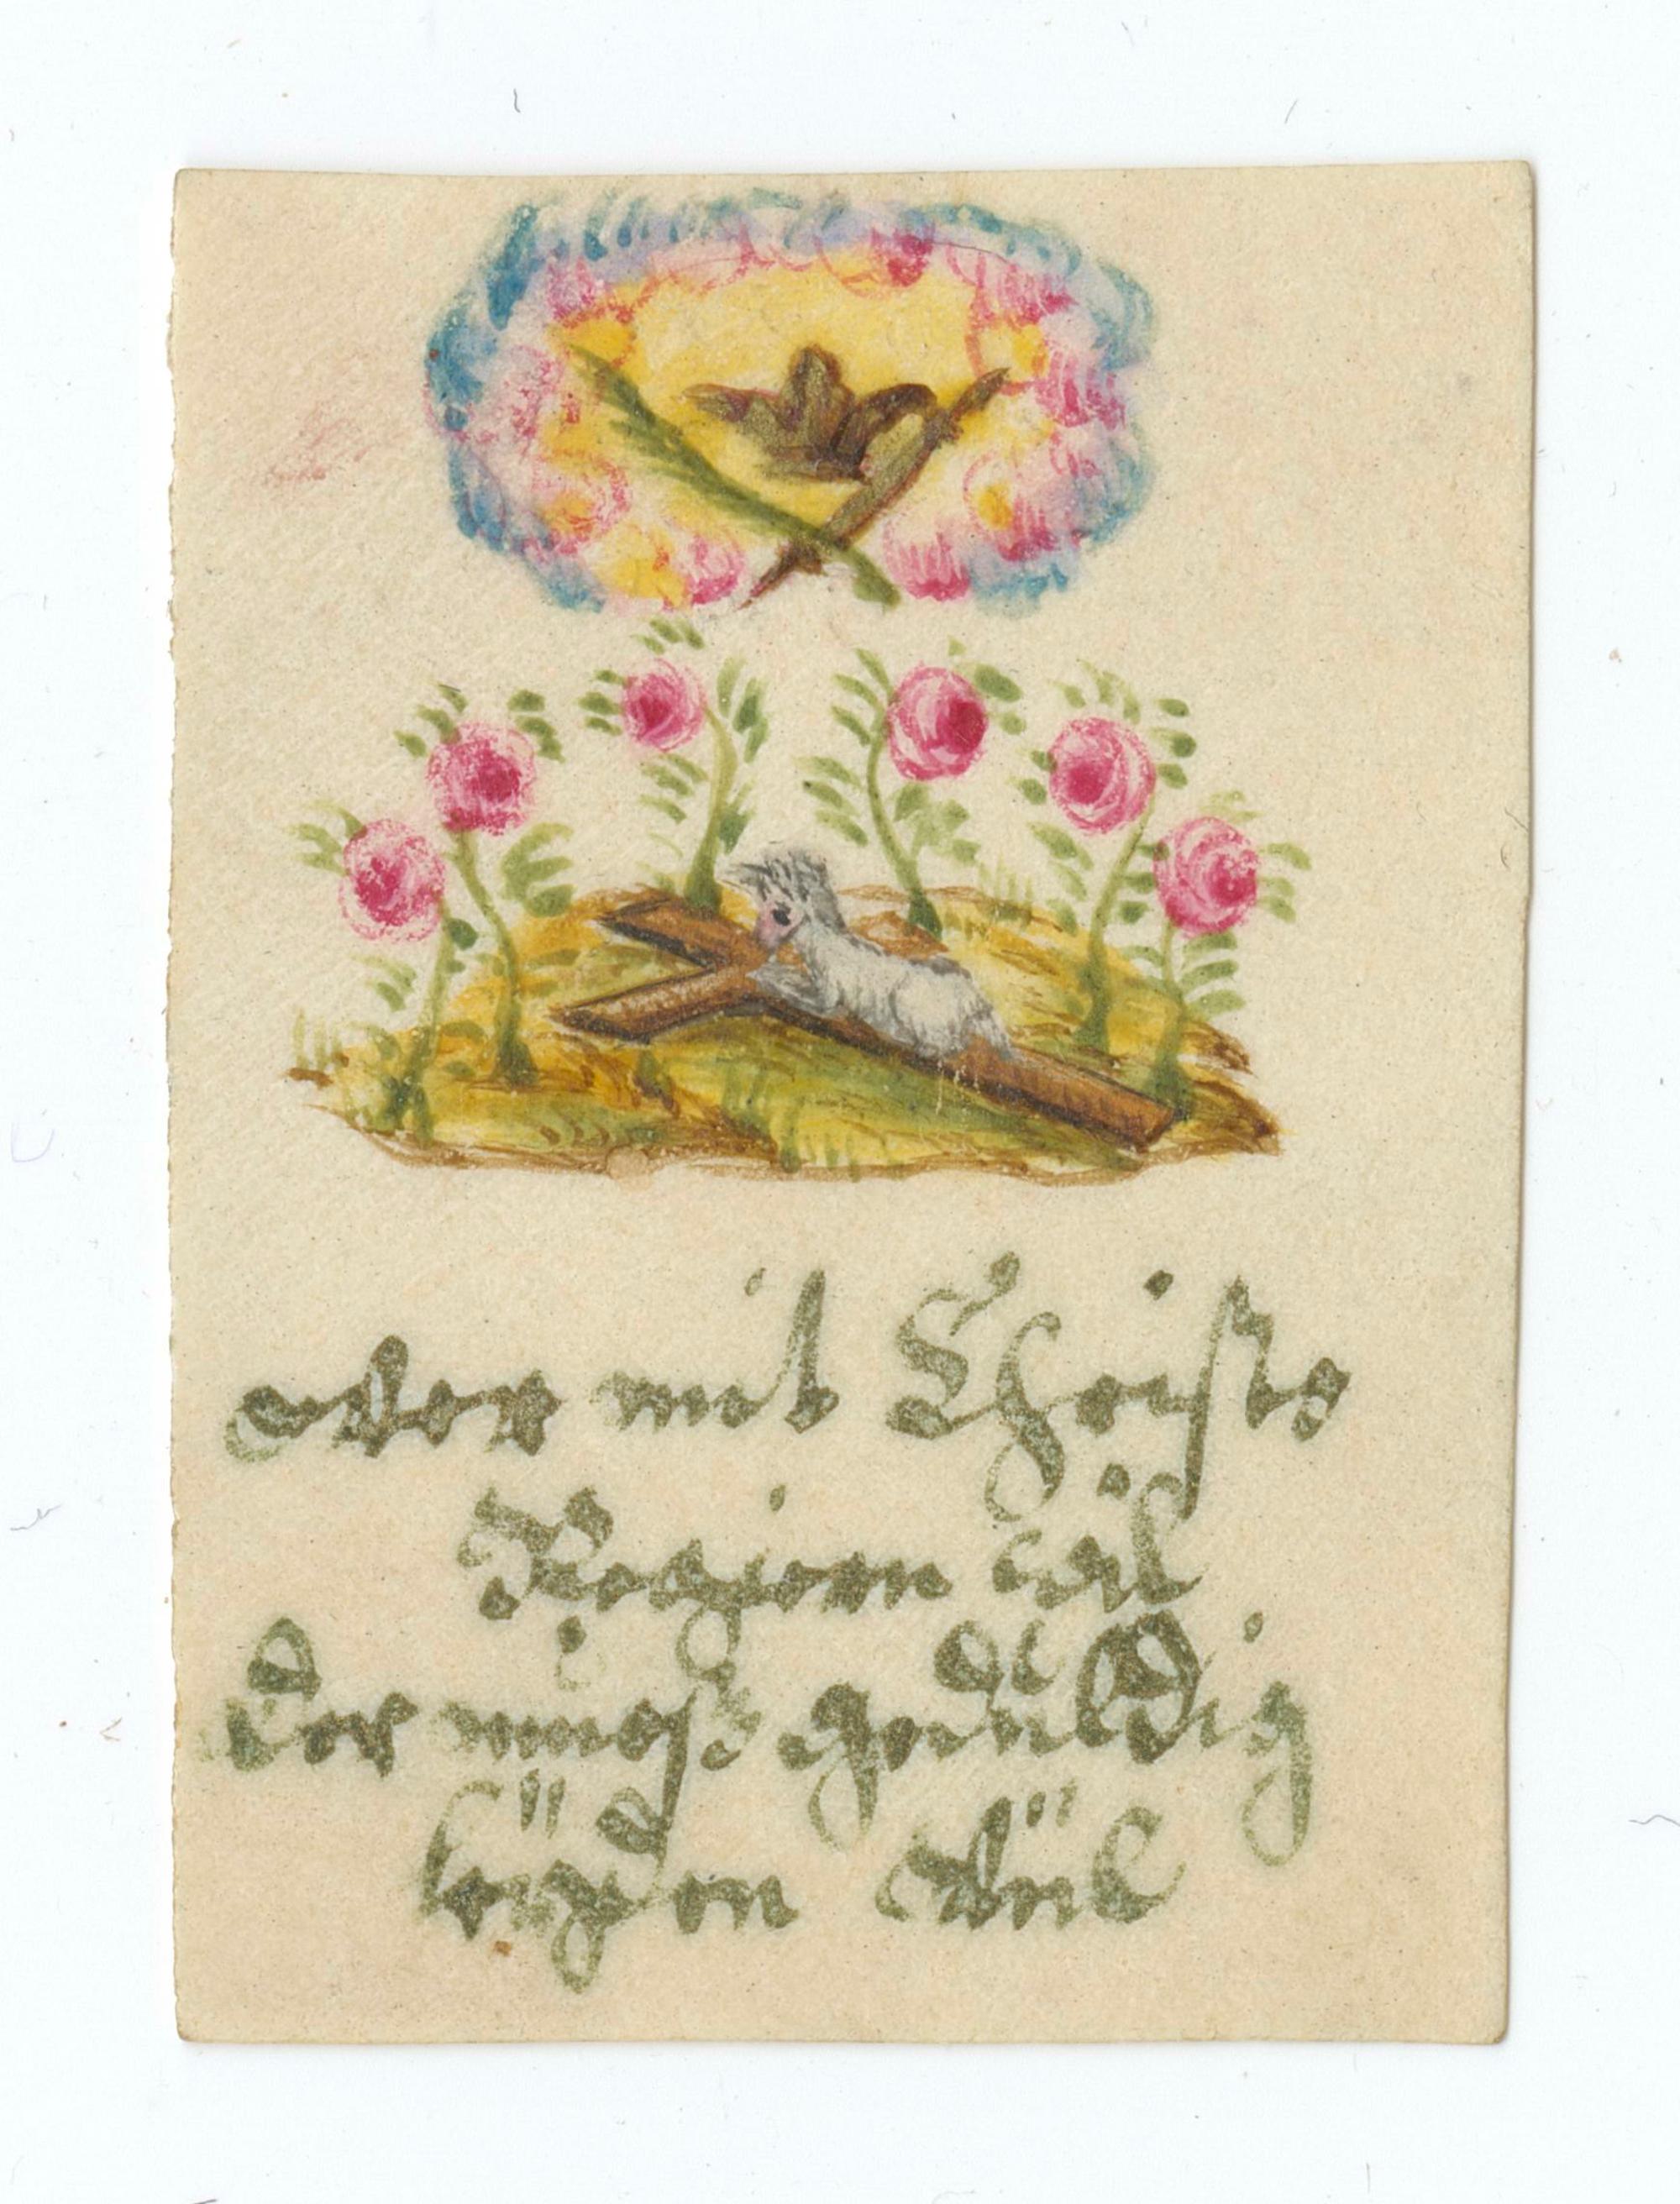 wer mit Christo
Regiern wil
der muos geduldig
leyden vüll